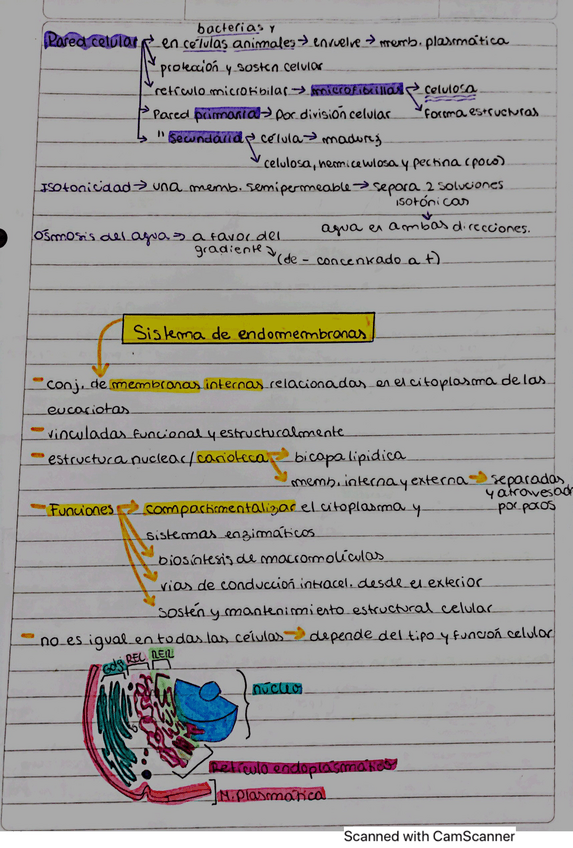 bacterias y
Pared celular → en células animales → envuelve → memb. plasmática
→ protección y sosten celular
→ retículo microfibilar → microfibrillas → celulosa
→ forma estructuras
→ Pared primaria → Por división celular
→ " secundaria → célula → madurez
→ celulosa, hemicelulosa y pectina (poco)
Isotonicidad → una memb. semipermeable → separa 2 soluciones
isotónicas
↓
agua en ambas direcciones.
Osmosis del agua → a favor del
gradiente → (de - concentrado a +)
Sistema de endomembranas
- conj. de membranas internas relacionadas en el citoplasma de las
eucariotas
- vinculadas funcional y estructuralmente
- estructura nuclear/carioteca → bicapa lipidica
→ memb. interna y externa → separadas
y atravesadas
por poros
- Funciones → compartimentalizar el citoplasma y
sistemas enzimáticos
→ biosíntesis de macromolículas
→ vias de conducción intracel. desde el exterior
→ sostén y mantenimiento estructural celular
- no es igual en todas las células → depende del tipo y función celular
Golgi REL RER
núcleo
Retículo endoplasmático
M. Plasmática
Scanned with CamScanner